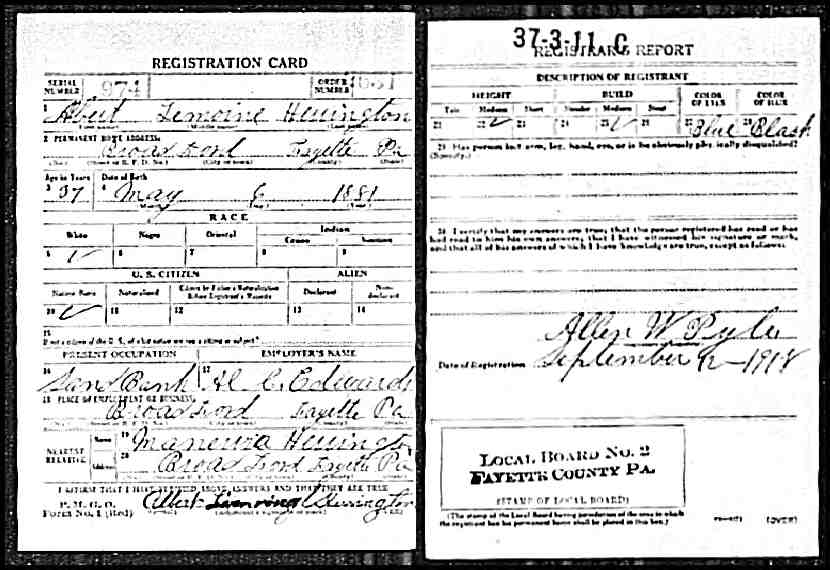 REGISTRATION CARD
SERIAL NUMBER 974 ORDER NUMBER
1 Albert Lemoine Herrington
(First name) (Middle name) (Last name)
2 PERMANENT HOME ADDRESS:
Broad Ford Fayette Pa
(No.) (Street or R. F. D. No.) (City or town) (County) (State)
Age in Years Date of Birth
3 37 4 May 6 1881
(Month) (Day) (Year)
RACE
White Negro Oriental Indian
Citizen Noncitizen
5 ✓ 6 7 8 9
U. S. CITIZEN ALIEN
Native Born Naturalized Citizen by Father's Naturalization Before Registrant's Majority Declarant Non-declarant
10 ✓ 11 12 13 14
15
If not a citizen of the U. S., of what nation are you a citizen or subject?
PRESENT OCCUPATION EMPLOYER'S NAME
16 Sand Bank 17 Al C. Edwards
18 PLACE OF EMPLOYMENT OR BUSINESS:
Broad Ford Fayette Pa
(No.) (Street or R. F. D. No.) (City or town) (County) (State)
NEAREST RELATIVE Name 19 Herrington
Address 20 Broad Ford Fayette Pa
I AFFIRM THAT I HAVE VERIFIED ABOVE ANSWERS AND THAT THEY ARE TRUE
P. M. G. O.
Form No. 1 (Red) Albert Herrington
37-3-11 C
REGISTRAR'S REPORT
DESCRIPTION OF REGISTRANT
HEIGHT BUILD COLOR OF EYES COLOR OF HAIR
Tall Medium Short Slender Medium Stout
21 22 ✓ 23 24 25 ✓ 26 27 Blue 28 Black
29 Has person lost arm, leg, hand, eye, or is he obviously physically disqualified?
(Specify.)
30 I certify that my answers are true; that the person registered has read or has
had read to him his own answers; that I have witnessed his signature or mark,
and that all of his answers of which I have knowledge are true, except as follows:
Allen W Pyle
Date of Registration September 12-1918
LOCAL BOARD NO. 2
FAYETTE COUNTY PA.
(STAMP OF LOCAL BOARD)
(The stamp of the Local Board having jurisdiction of the area in which
the registrant has his permanent home shall be placed in this box.)
(OVER)